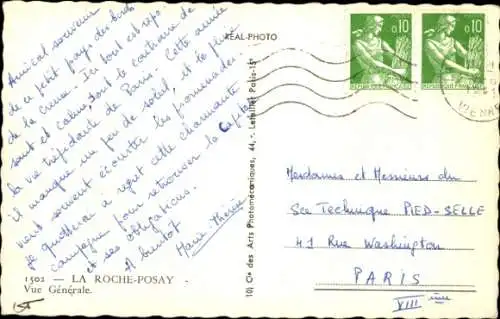 Amical souvenir
de ce petit pays des bords
de la Creuse. Ici tout est repo-
sant et calme, tout le contraire de
la vie trépidante de Paris. Cette année
il manque un peu de soleil, et la pluie
vient souvent écourter les promenades
Je quitterai à regret cette charmante
campagne pour retrouver la Capitale
et ses obligations.
A bientôt
Marie Thérèse
1502 - LA ROCHE-POSAY
Vue Générale.
RÉAL-PHOTO
10) Cie des Arts Photomécaniques, 44, - Letellier Paris-15e
0,10
0,10
VIENNE
Mesdames et Messieurs du
Sce Technique PIED-SELLE
41 Rue Washington
PARIS
VIIIème